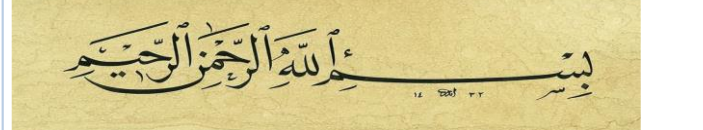 بِسْمِ اللَّهِ الرَّحْمَٰنِ الرَّحِيمِ
١٤ ٣٢